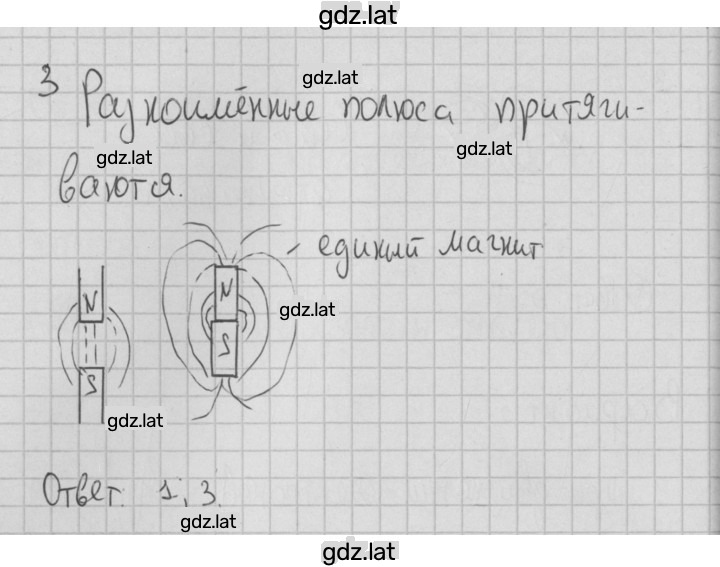 gdz.lat
3 Разноимённые полюса притяги-
gdz.lat
gdz.lat
gdz.lat
ваются.
единый магнит
N
N
gdz.lat
S
S
gdz.lat
Ответ. 1; 3.
gdz.lat
gdz.lat